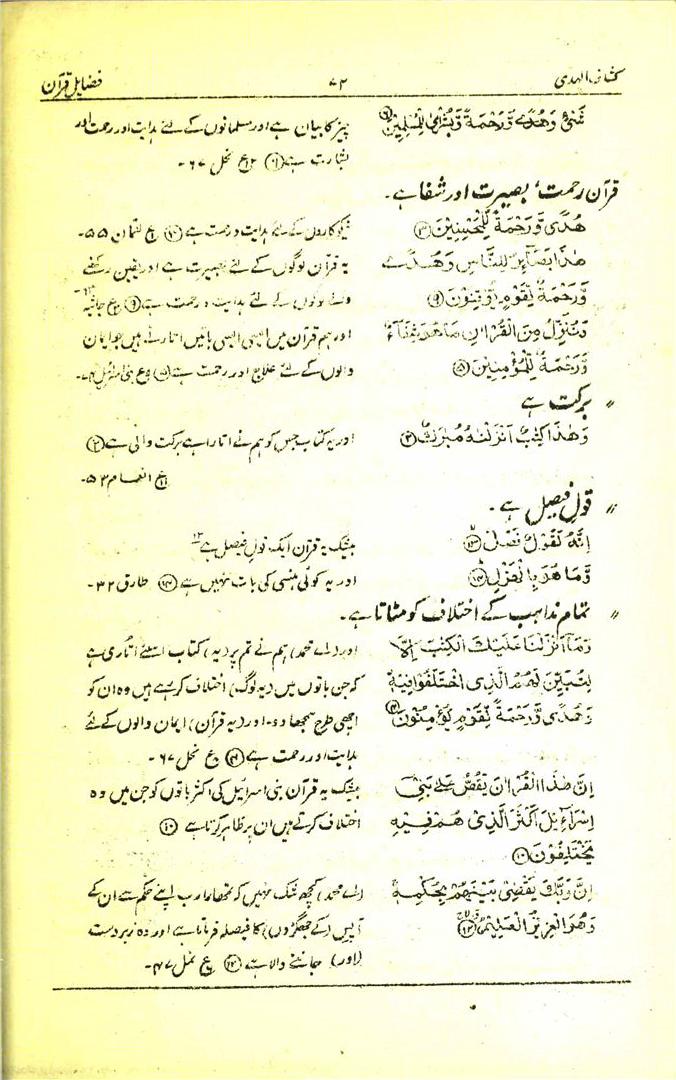 کتاب الہدی ۷۲ فضایل قرآن
شَیْءٍ وَّهُدًی وَّرَحْمَةً وَّبُشْرٰی لِلْمُسْلِمِیْنَ
چیز کا بیان ہے اور مسلمانوں کے لئے ہدایت اور رحمت اور
بشارت ہے نحل ۶۷۔
قرآن رحمت، بصیرت اور شفا ہے۔
هُدًی وَّرَحْمَةً لِّلْمُحْسِنِیْنَ ③
نیکوکاروں کے لئے ہدایت و رحمت ہے لقمان ۵۵۔
هٰذَا بَصَآئِرُ لِلنَّاسِ وَهُدًی
وَّرَحْمَةٌ لِّقَوْمٍ یُّوْقِنُوْنَ
یہ قرآن لوگوں کے لئے بصیرت ہے اور یقین رکھنے
والے لوگوں کے لئے ہدایت و رحمت ہے جاثیہ
وَنُنَزِّلُ مِنَ الْقُرْاٰنِ مَا هُوَ شِفَآءٌ
وَّرَحْمَةٌ لِّلْمُؤْمِنِیْنَ
اور ہم قرآن میں ایسی ایسی باتیں اتارتے ہیں جو ایمان
والوں کے لئے علاج اور رحمت ہے
〃 برکت ہے
وَهٰذَا كِتٰبٌ اَنْزَلْنٰهُ مُبٰرَكٌ
اور یہ کتاب جس کو ہم نے اتارا ہے برکت والی ہے
انعام ۵۳۔
〃 قول فیصل ہے۔
اِنَّهٗ لَقَوْلٌ فَصْلٌ ⑬
وَّمَا هُوَ بِالْهَزْلِ
بیشک یہ قرآن ایک قول فیصل ہے
اور یہ کوئی ہنسی کی بات نہیں ہے طارق ۳۲۔
〃 تمام مذاہب کے اختلاف کو مٹاتا ہے۔
وَمَآ اَنْزَلْنَا عَلَیْكَ الْكِتٰبَ اِلَّا
لِتُبَیِّنَ لَهُمُ الَّذِی اخْتَلَفُوْا فِیْهِ
وَهُدًی وَّرَحْمَةً لِّقَوْمٍ یُّؤْمِنُوْنَ
اور (اے محمد) ہم نے تم پر (یہ) کتاب اسلئے اتاری ہے
کہ جن باتوں میں (یہ لوگ) اختلاف کرتے ہیں وہ ان کو
اچھی طرح سمجھا دو۔ اور (یہ قرآن) ایمان والوں کے لئے
ہدایت اور رحمت ہے نحل ۶۷۔
اِنَّ هٰذَا الْقُرْاٰنَ یَقُصُّ عَلٰی بَنِیْٓ
اِسْرَآءِیْلَ اَكْثَرَ الَّذِیْ هُمْ فِیْهِ
یَخْتَلِفُوْنَ
بیشک یہ قرآن بنی اسرائیل کی اکثر باتوں کو جن میں وہ
اختلاف کرتے ہیں ان پر ظاہر کرتا ہے
اِنَّ رَبَّكَ یَقْضِیْ بَیْنَهُمْ بِحُكْمِهٖ
وَهُوَ الْعَزِیْزُ الْعَلِیْمُ
(اے محمد) کچھ شک نہیں کہ تمھارا رب اپنے حکم سے ان کے
آپس (کے جھگڑوں) کا فیصلہ فرماتا ہے اور وہ زبردست
(اور) جاننے والا ہے نمل ۴۷۔